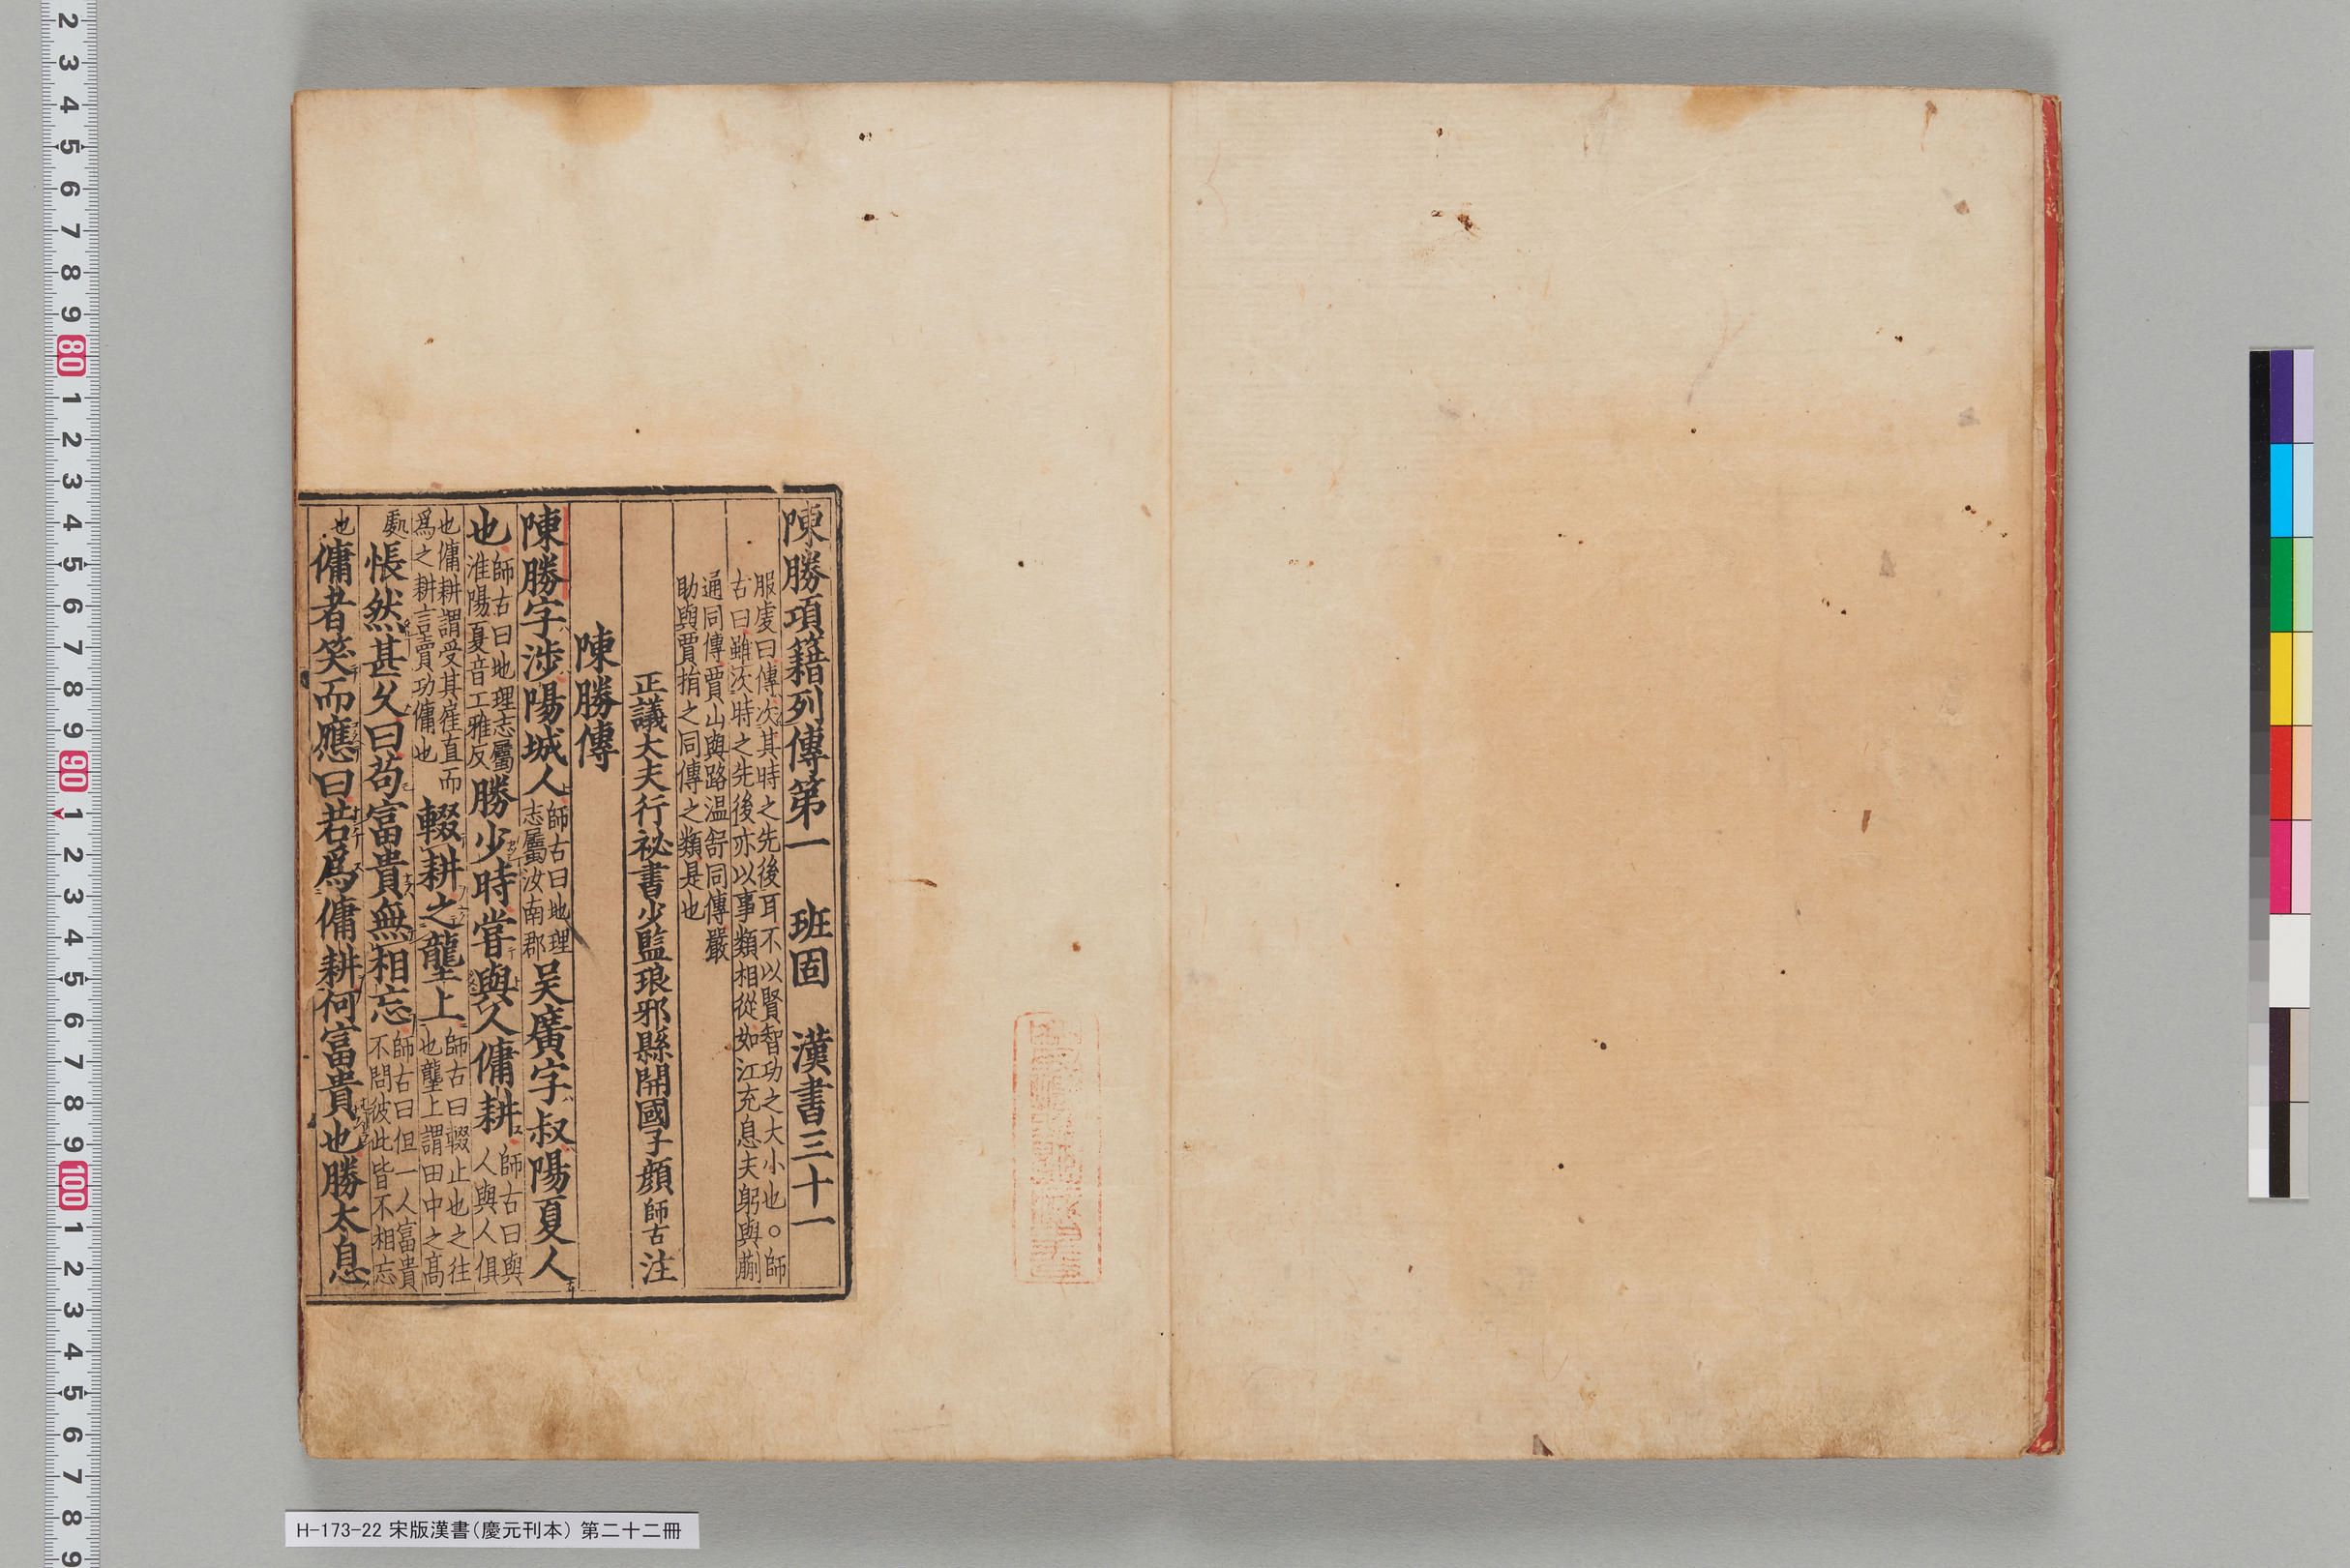 陳勝項籍列傳第一　班固　漢書三十一
服虔曰傳次其時之先後耳不以賢智功之大小也○師
古曰雖次時之先後亦以事類相從如江充息夫躬與蒯
通同傳賈山與路温舒同傳嚴
助與賈捐之同傳之類是也
正議大夫行祕書少監琅邪縣開國子顔師古注
陳勝傳
陳勝字涉陽城人師古曰地理志屬汝南郡吴廣字叔陽夏人
也師古曰地理志屬淮陽夏音工雅反勝少時甞與人傭耕師古曰與人與人俱
也傭耕謂受其雇直而爲之耕言賣功傭也輟耕之壟上師古曰輟止也之往也壟上謂田中之髙
處悵然甚久曰苟富貴無相忘師古曰但一人富貴不問彼此皆不相忘
也傭者笑而應曰若爲傭耕何富貴也勝太息
2
3
4
5
6
7
8
9
80
1
2
3
4
5
6
7
8
9
90
1
2
3
4
5
6
7
8
9
100
1
2
3
4
5
6
7
8
9
H-173-22 宋版漢書（慶元刊本） 第二十二冊